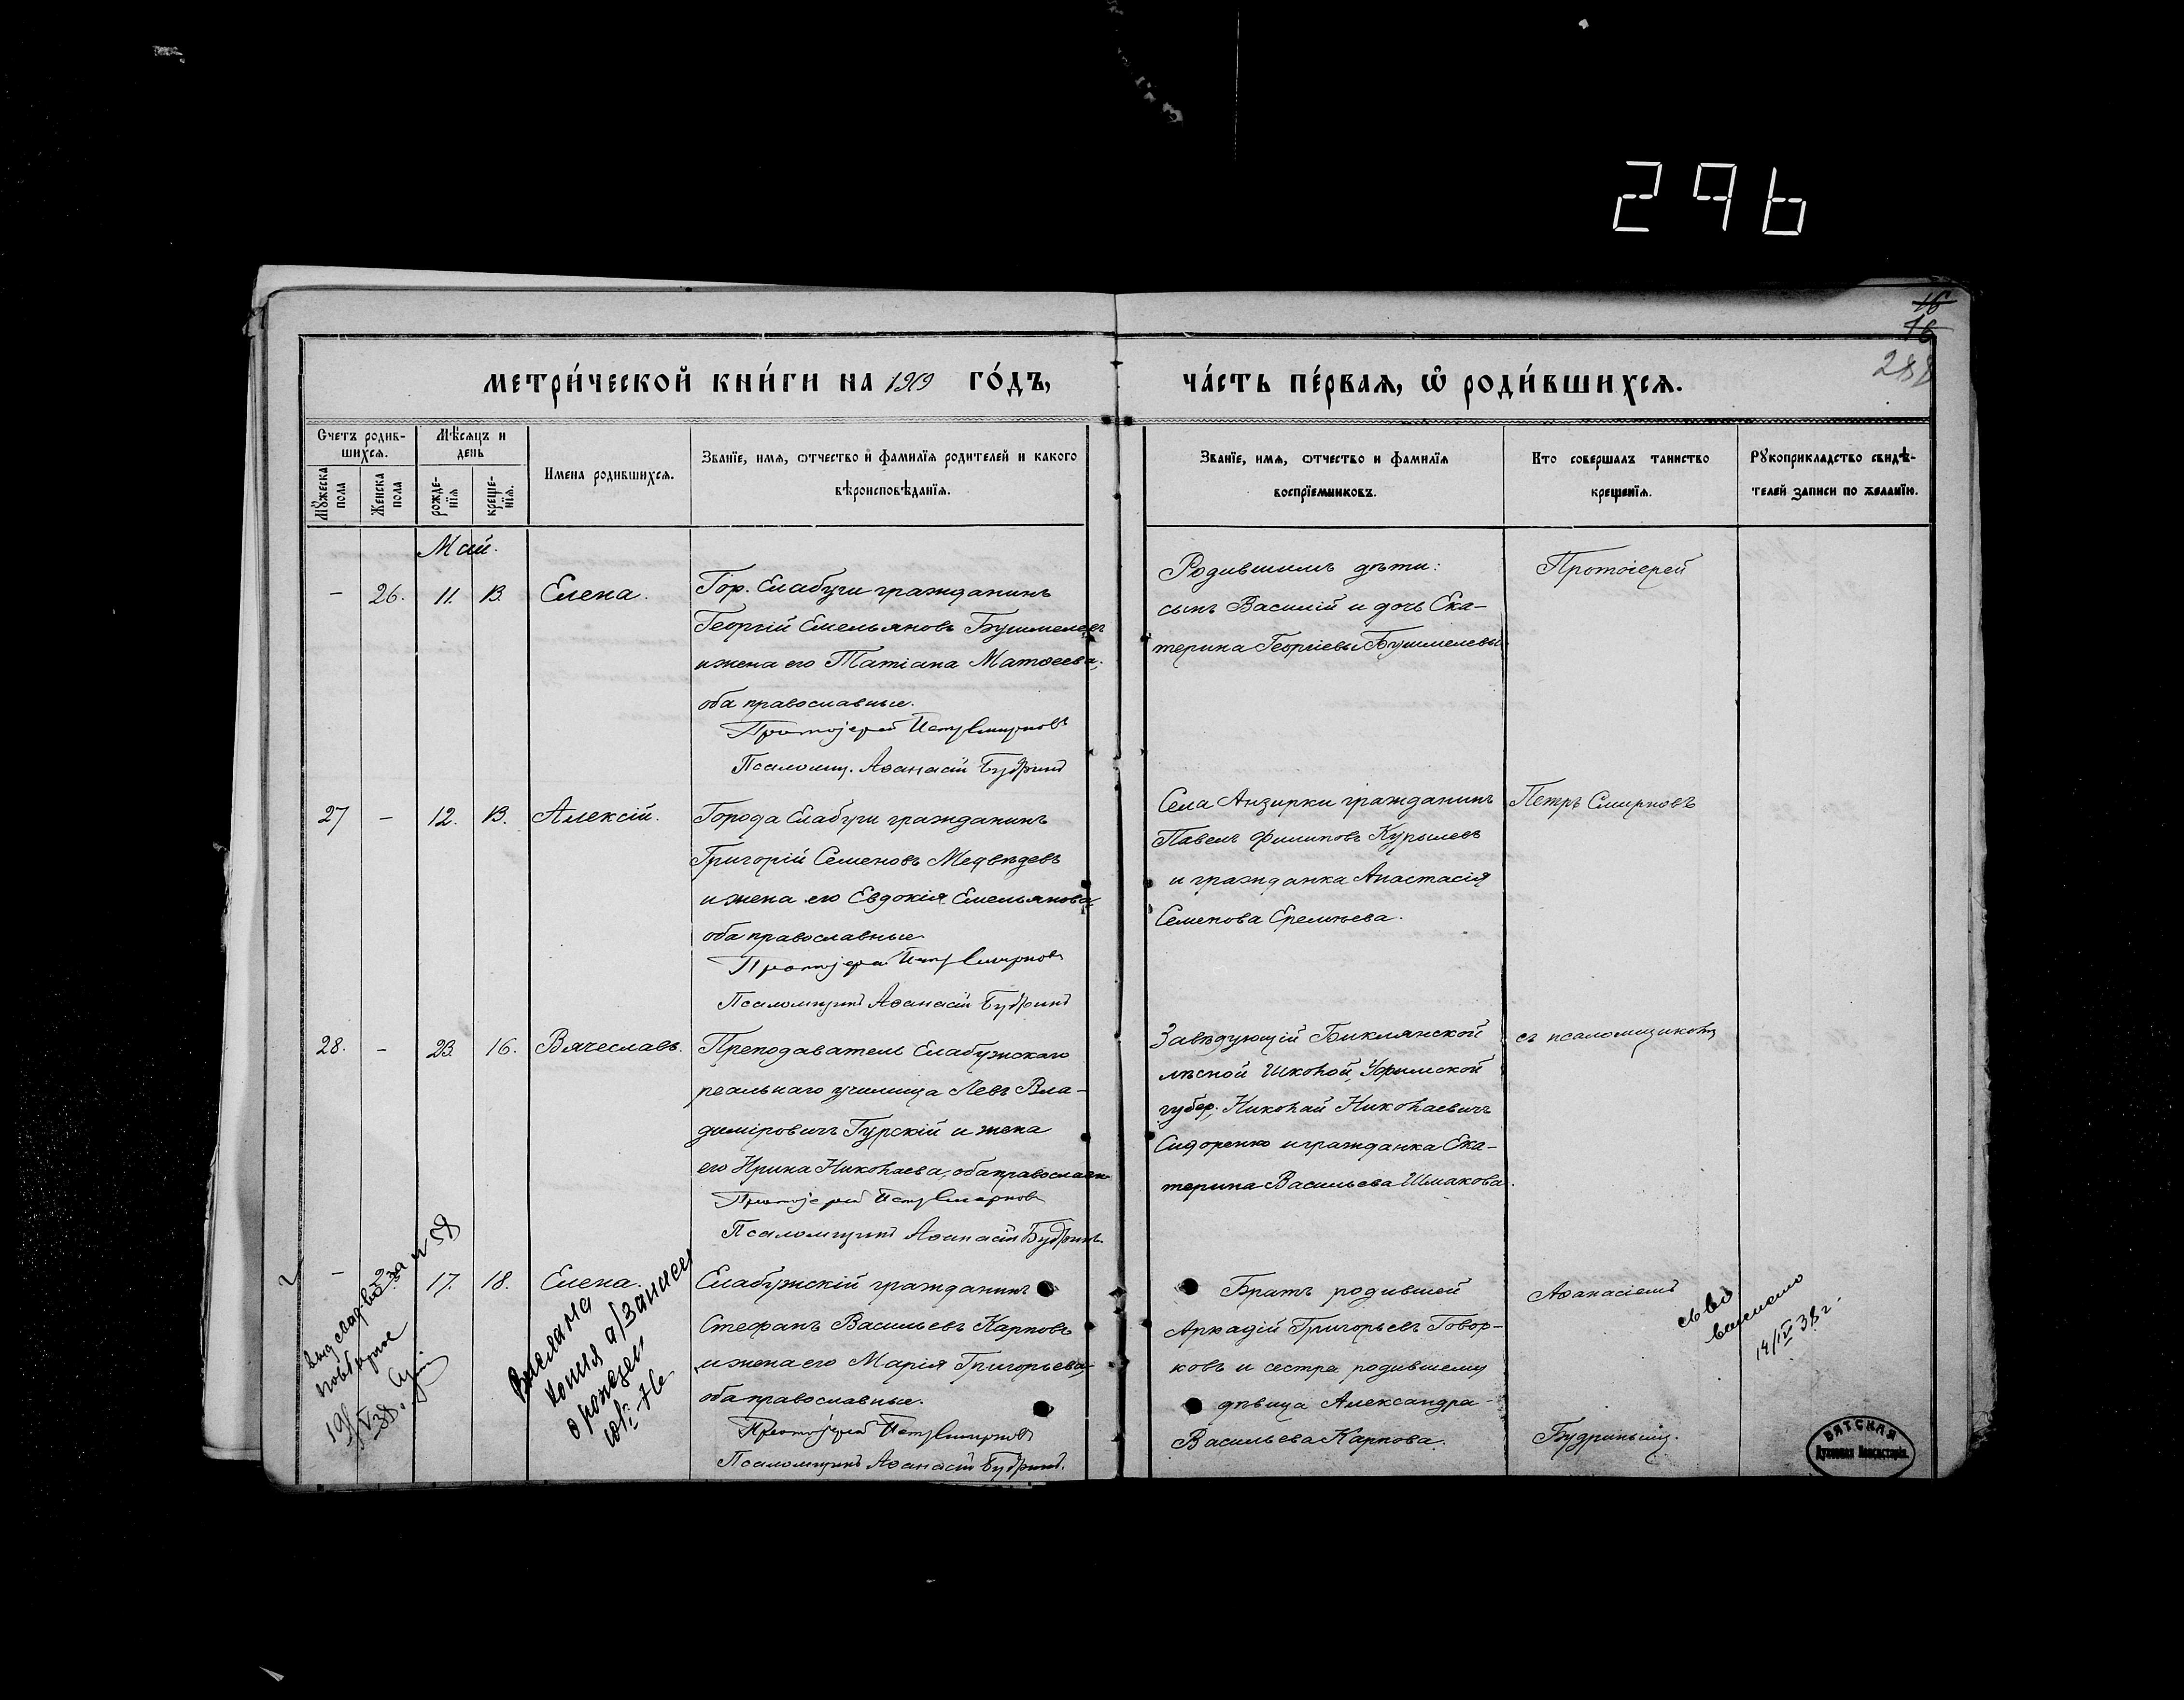 296
16
16
288
МЕТРИ́ЧЕСКОЙ КНИ́ГИ НА 1919 ГО́ДЪ,
ЧА́СТЬ ПЕ́РВАЯ, Ѡ РОДИ́ВШИХСЯ.
Счетъ родив-
шихся.
Мѣсяцъ и
день
Мꙋжеска
пола
Женска
пола
рожде-
нїя
креще-
нїя.
Имена родившихся.
Званїе, имя, ѿтчество и фамилїя родителей и какого
вѣроисповѣданїя.
Званїе, имя, ѿтчество и фамилїя
воспрїемниковъ.
Кто совершалъ таинство
крещенїя.
Рꙋкоприкладство свидѣ-
телей записи по желанїю.
Май.
– 26. 11. 13. Елена.
Гор. Елабуги гражданинъ
Георгій Емельяновъ Бушмелевъ
и жена его Татіана Матѳеева,
оба православные.
Протоіерей Петръ Смирновъ
Псаломщ. Аѳанасій Будринъ
Родившимъ дѣти:
сынъ Василій и дочь Ека-
терина Георгіевы Бушмелевы.
Протоіерей
27 – 12. 13. Алексій.
Города Елабуги гражданинъ
Григорій Семеновъ Медвѣдевъ
и жена его Евдокія Емельянова,
оба православные.
Протоіерей Петръ Смирновъ
Псаломщикъ Аѳанасій Будринъ
Села Анзирки гражданинъ
Павелъ Филиповъ Курылевъ
и гражданка Анастасія
Семенова Еремѣева.
Петръ Смирновъ
28. – 23. 16. Вячеславъ.
Преподаватель Елабужскаго
реальнаго училища Левъ Вла-
димировичъ Гурскій и жена
его Ирина Николаева, оба православн.
Протоіерей Петръ Смирновъ
Псаломщикъ Аѳанасій Будринъ.
Завѣдующій Биклянской
лѣсной школой, Уфимской
губер. Николай Николаевичъ
Сидоренко и гражданка Ека-
терина Васильева Шмакова.
съ псаломщикомъ
– 17. 18. Елена.
Елабужскій гражданинъ
Стефанъ Васильевъ Карповъ
и жена его Марія Григорьева,
оба православные.
Протоіерей Петръ Смирновъ
Псаломщикъ Аѳанасій Будринъ.
Братъ родившей
Аркадій Григорьевъ Говор-
ковъ и сестра родившему
дѣвица Александра
Васильева Карпова.
Аѳанасіемъ
Будринымъ.
Выслана
копия а/записи
о рожден
14/IV 38 г.
ВЯТСКАЯ
Духовная Консисторія.